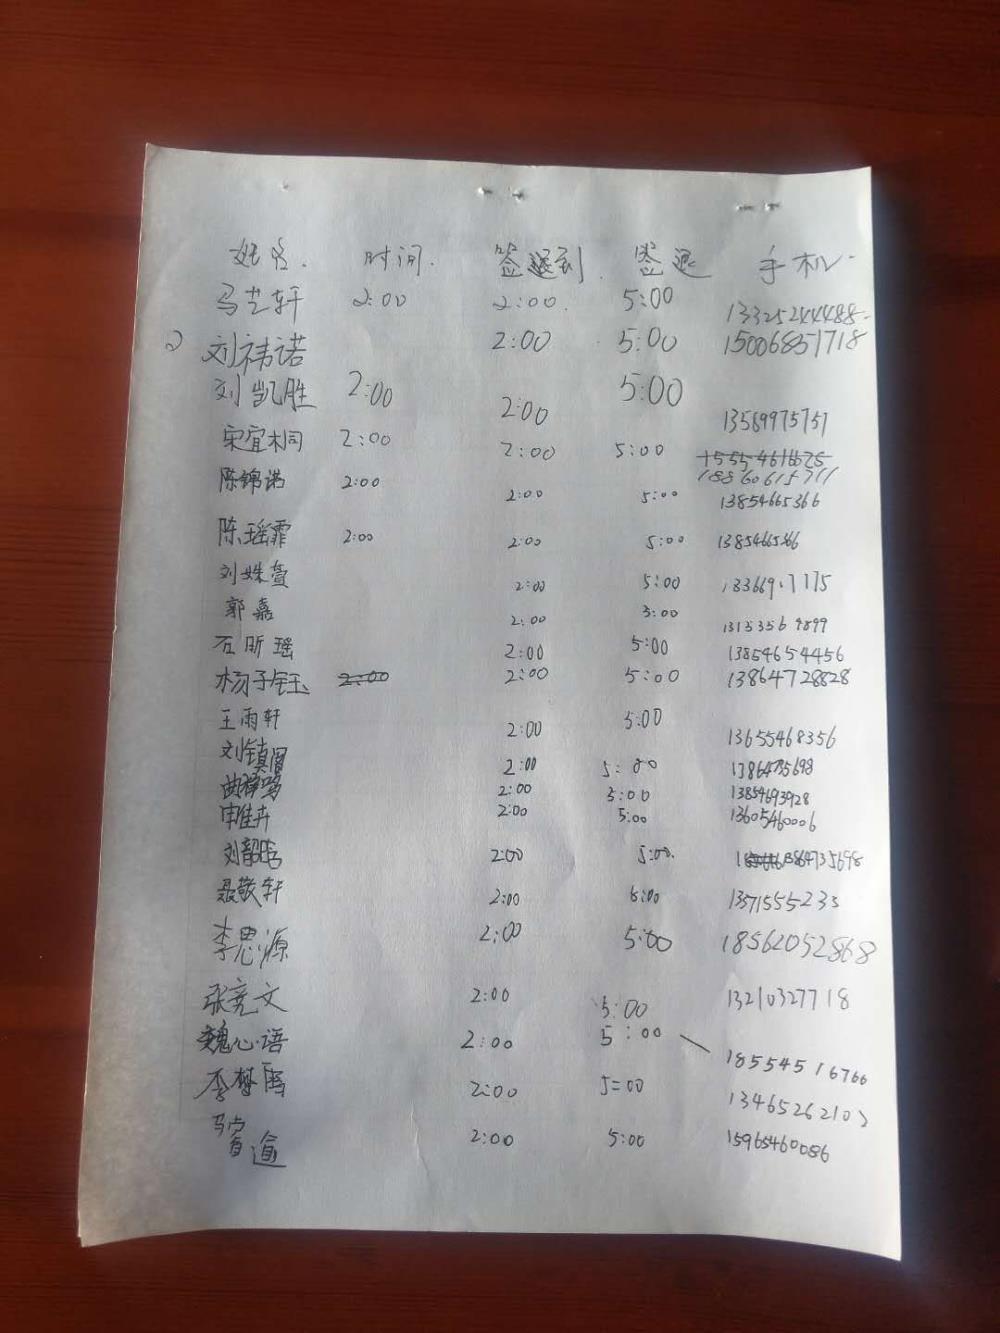 姓名. 时间. 签到. 签退 手机.
马艺轩 2:00 2:00. 5:00 13325244488
刘祎诺 2:00 5:00 15006851718
刘凯胜 2:00 2:00 5:00 13589975751
宋宜桐 2:00 2:00 5:00 18860615711
陈锦诺 2:00 2:00 5:00 13854665366
陈瑶霏 2:00 2:00 5:00
刘姝萱 2:00 5:00
郭嘉 2:00 5:00
石昕瑶 2:00 5:00 13854654456
杨子钰 2:00 2:00 5:00 13864728828
王雨轩 2:00 5:00 13655468356
刘镇 2:00 5:00
2:00 5:00 13854693928
申佳卉 2:00 5:00 13605460006
刘韶晗 2:00 5:00. 13864735698
聂敬轩 2:00 5:00 13715552
李思源 2:00 5:00 18562052868
张竞文 2:00 5:00 13210327718
魏心语 2:00 5:00 18554516766
李梦雨 2:00 5:00 1346526210
2:00 5:00 15965460086